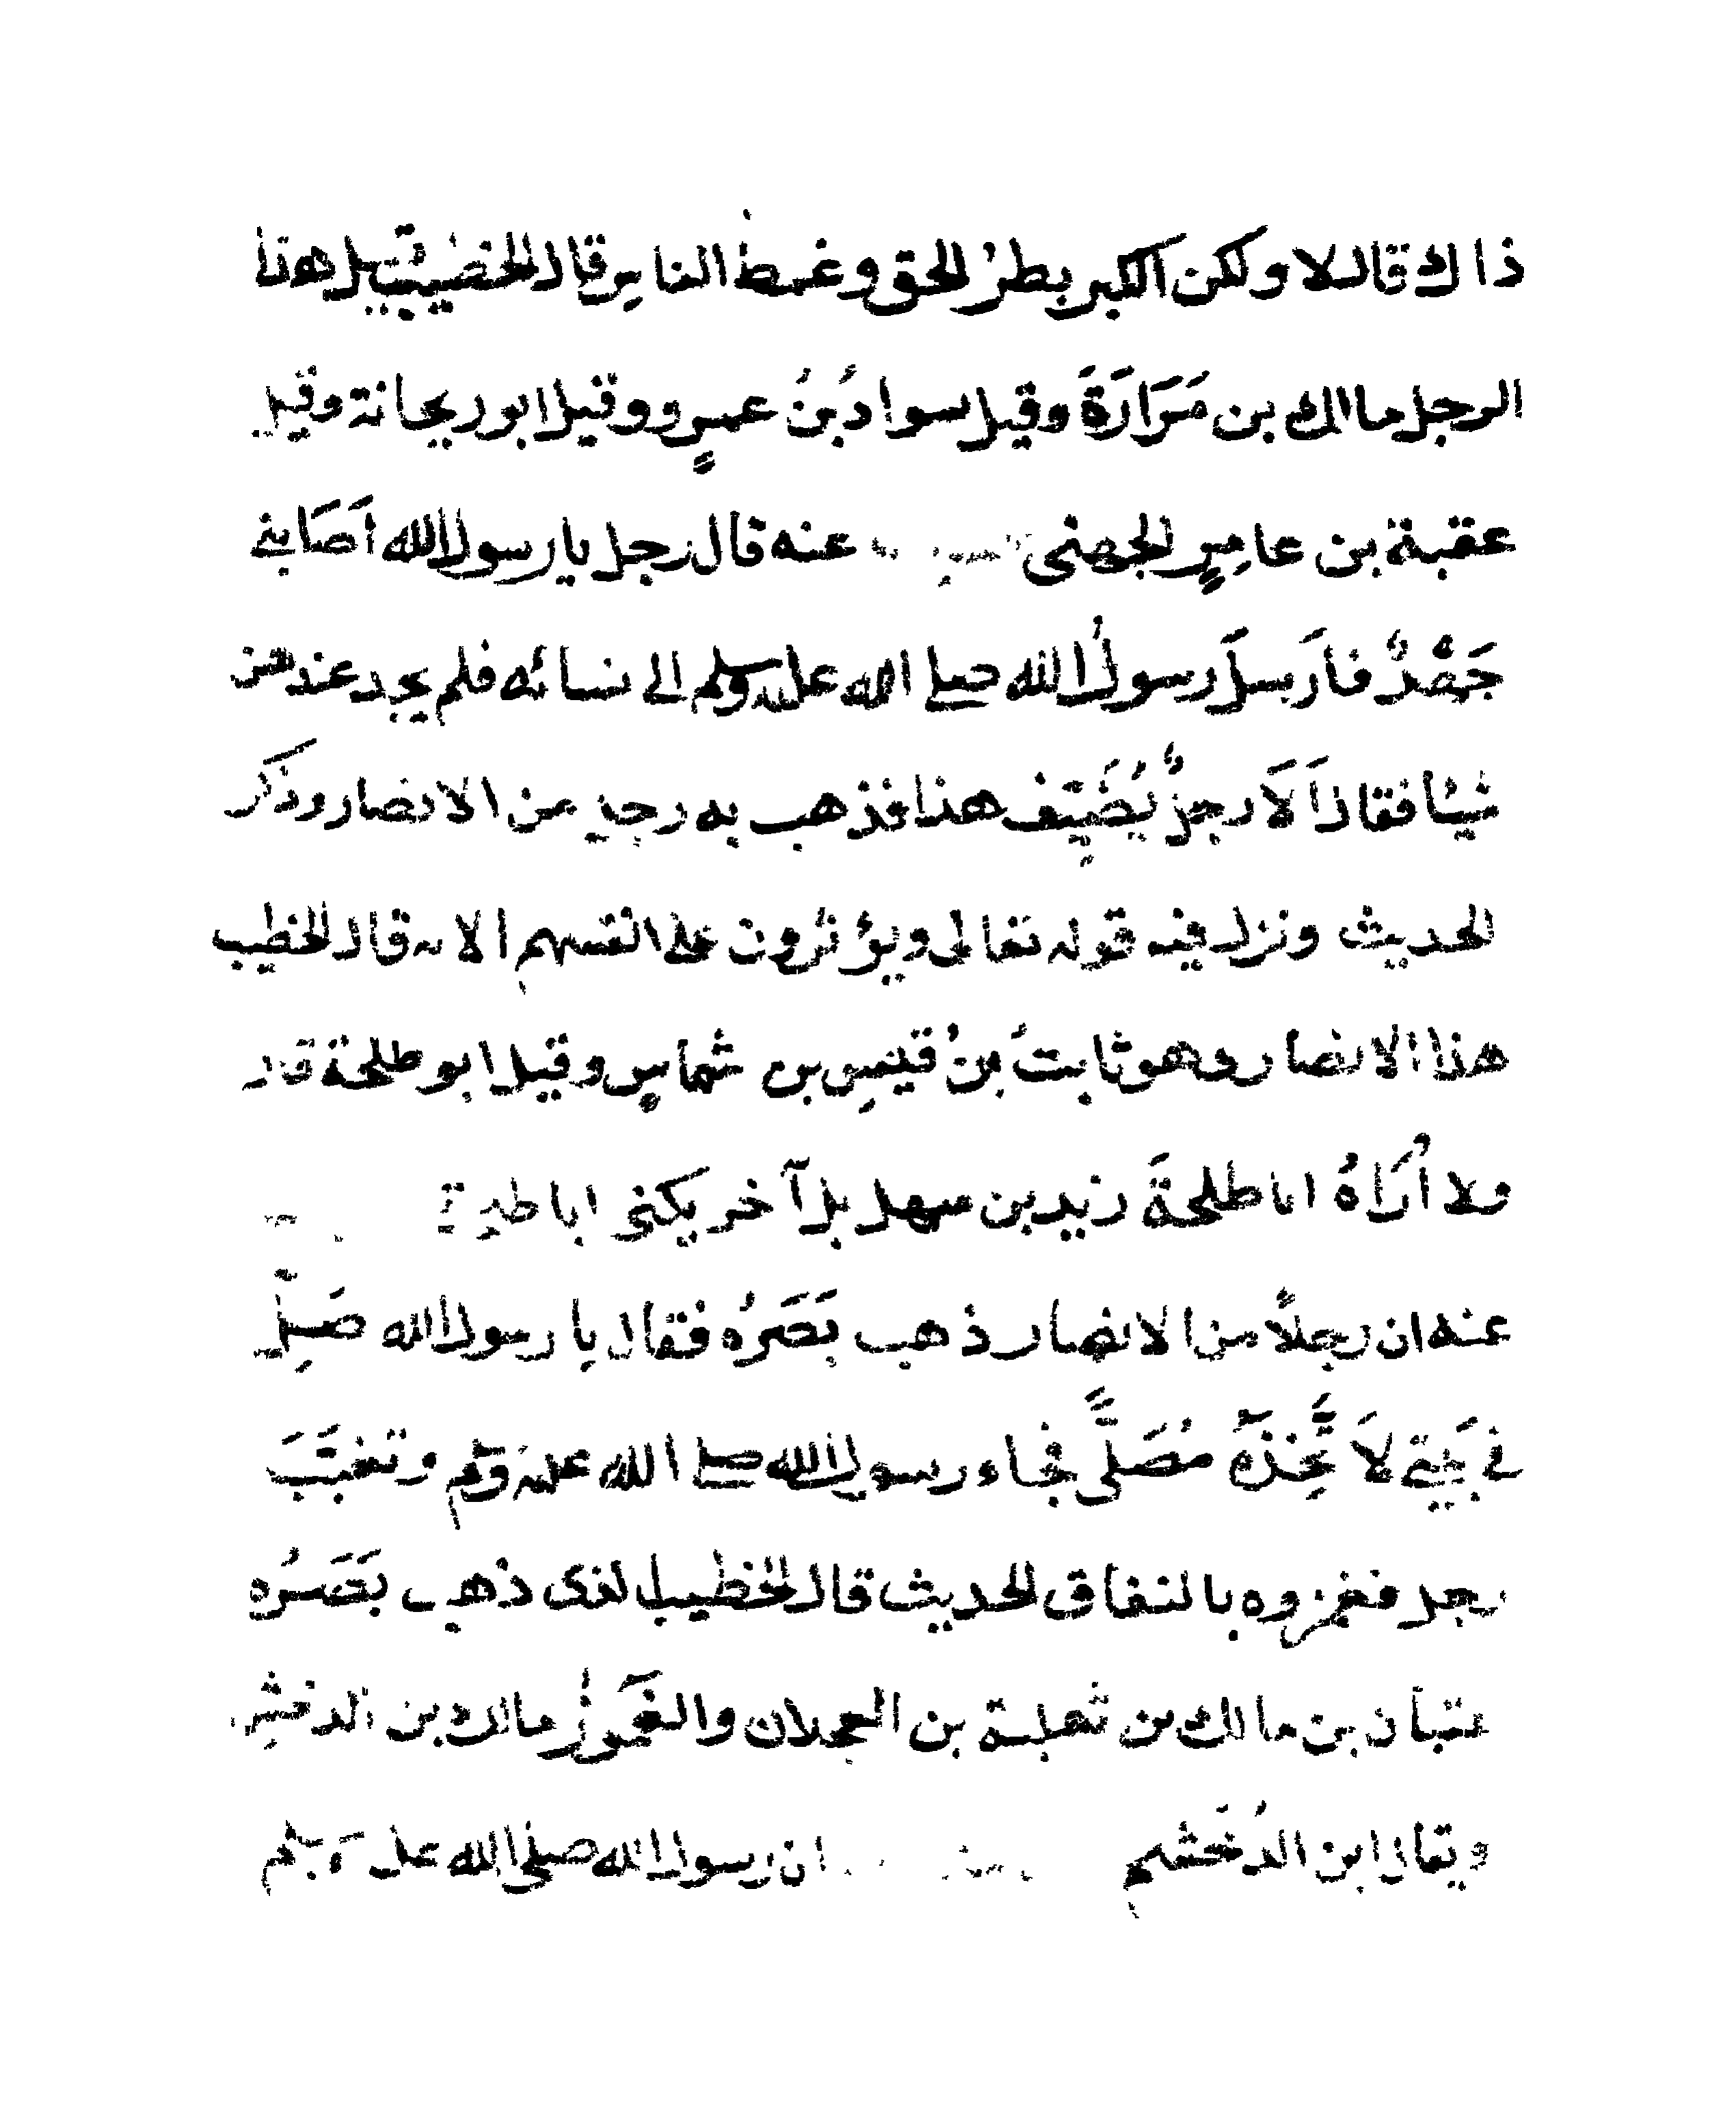 ذاك قال لا ولكن الكبر بطرُ الحق وغمط الناس قال الخطيب قيل هذا
الرجل مالك بن مَرَارَةَ وقيل سوادُ بنُ عمرٍو وقيل ابو ريحانة وقيل
عقبة بن عامِرٍ الجهنى عنه قال رجل يا رسول الله اَصَابنى
جَهْدٌ فاَرسلَ رسولُ الله صلى الله عليه وسلم الى نسائه فلم يجد عندهن
شيئا فقال اَلَا رجلٌ يُضَيِّف هذا فذهب به رجل من الانصار وذكر
الحديث ونزل فيه قوله تعالى ويؤثرون على انفسهم الاىه قال الخطيب
هذا الانصارى هو ثابتُ بنُ قيسِ بن شماسٍ وقيل ابو طلحة قال
ولا اُرَاهُ ابا طلحةَ زيد بن سهل بل آخر يكنى ابا طلحة
عنه ان رجلاً من الانصار ذهب بَصَرُه فقال يا رسول الله صَلِّ
فى بَيتى لاَتَّخِذَهُ مُصَلًّى فجاء رسول الله صلى الله عليه وسلم وتغيَّبَ
رجل فغمزوه بالنفاق الحديث قال الخطيب الذى ذهب بَصَرُه
عتبان بن مالك بن ثعلبة بن العجلان والمَغموزُ مالك بن الدخشم
ويقال ابن الدُخَيشم ان رسول الله صلى الله عليه وسلم